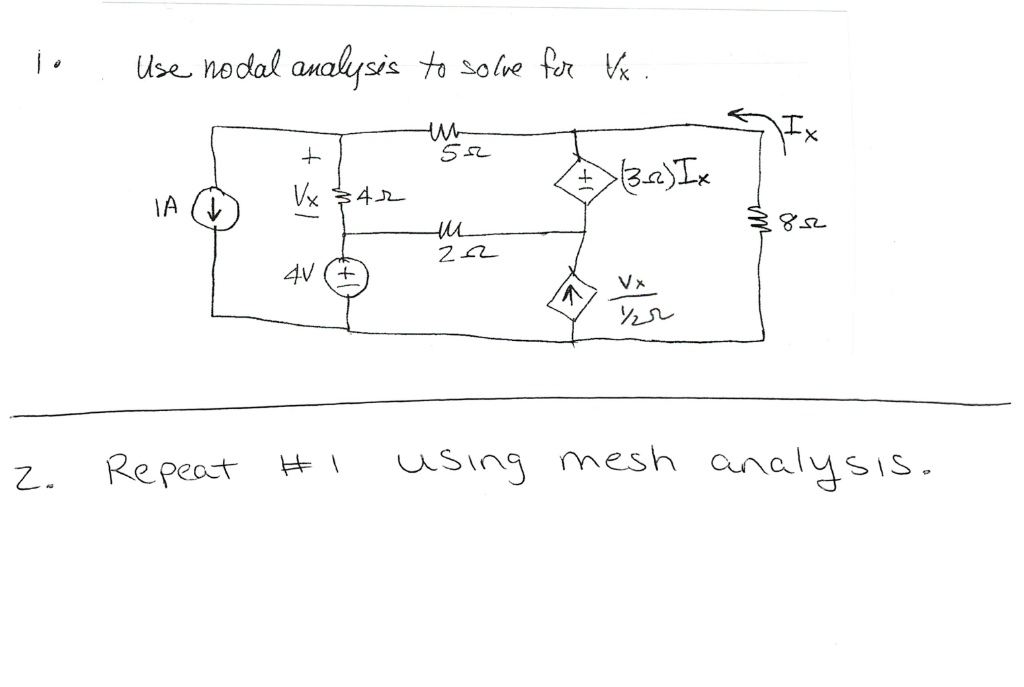 1. Use nodal analysis to solve for Vx.
Ix
5Ω
+
(3Ω)Ix
+
Vx
4Ω
1A
8Ω
2Ω
4V
+
Vx
1/2Ω
2. Repeat #1 using mesh analysis.